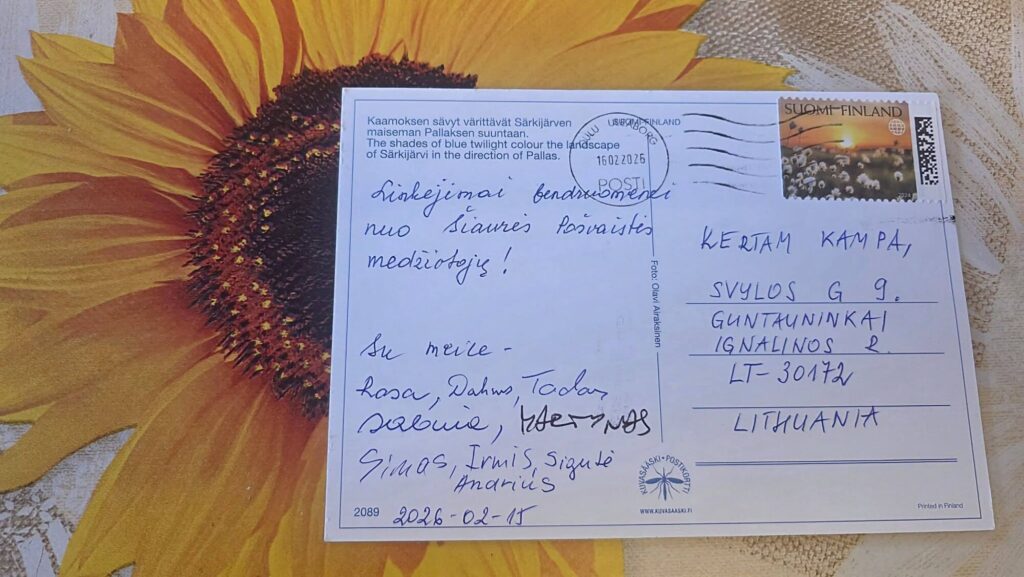 Kaamoksen sävyt värittävät Särkijärven
maiseman Pallaksen suuntaan.
The shades of blue twilight colour the landscape
of Särkijärvi in the direction of Pallas.
16 02 2026
POSTI
SUOMI FINLAND
Linkėjimai bendruomenei
nuo Šiaurės Pašvaistės
medžiotojų!
Su meile -
Rasa, Dalius, Tadas,
Sabina,
Simas, Irmis, Sigutė
Andrius
2089 2026-02-15
Foto: Olavi Airaksinen
KERTAM KAMPA,
SVYLOS G 9.
GUNTAUNINKAI
IGNALINOS R.
LT-30172
LITHUANIA
KUVASÄÄSKI • POSTIKORTTI
WWW.KUVASAASKI.FI
Printed in Finland